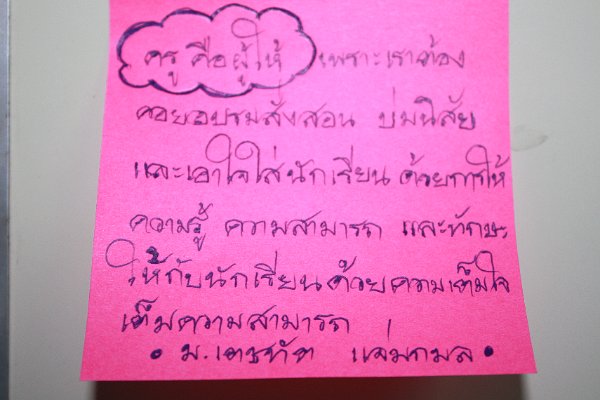 ครู คือผู้ให้ เพราะเราต้อง
คอยอบรมสั่งสอน บ่มนิสัย
และเอาใจใส่นักเรียน ด้วยการให้
ความรู้ ความสามารถ และทักษะ
ให้กับนักเรียนด้วยความเต็มใจ
เต็มความสามารถ
น.เตชทัต แจ่มกมล